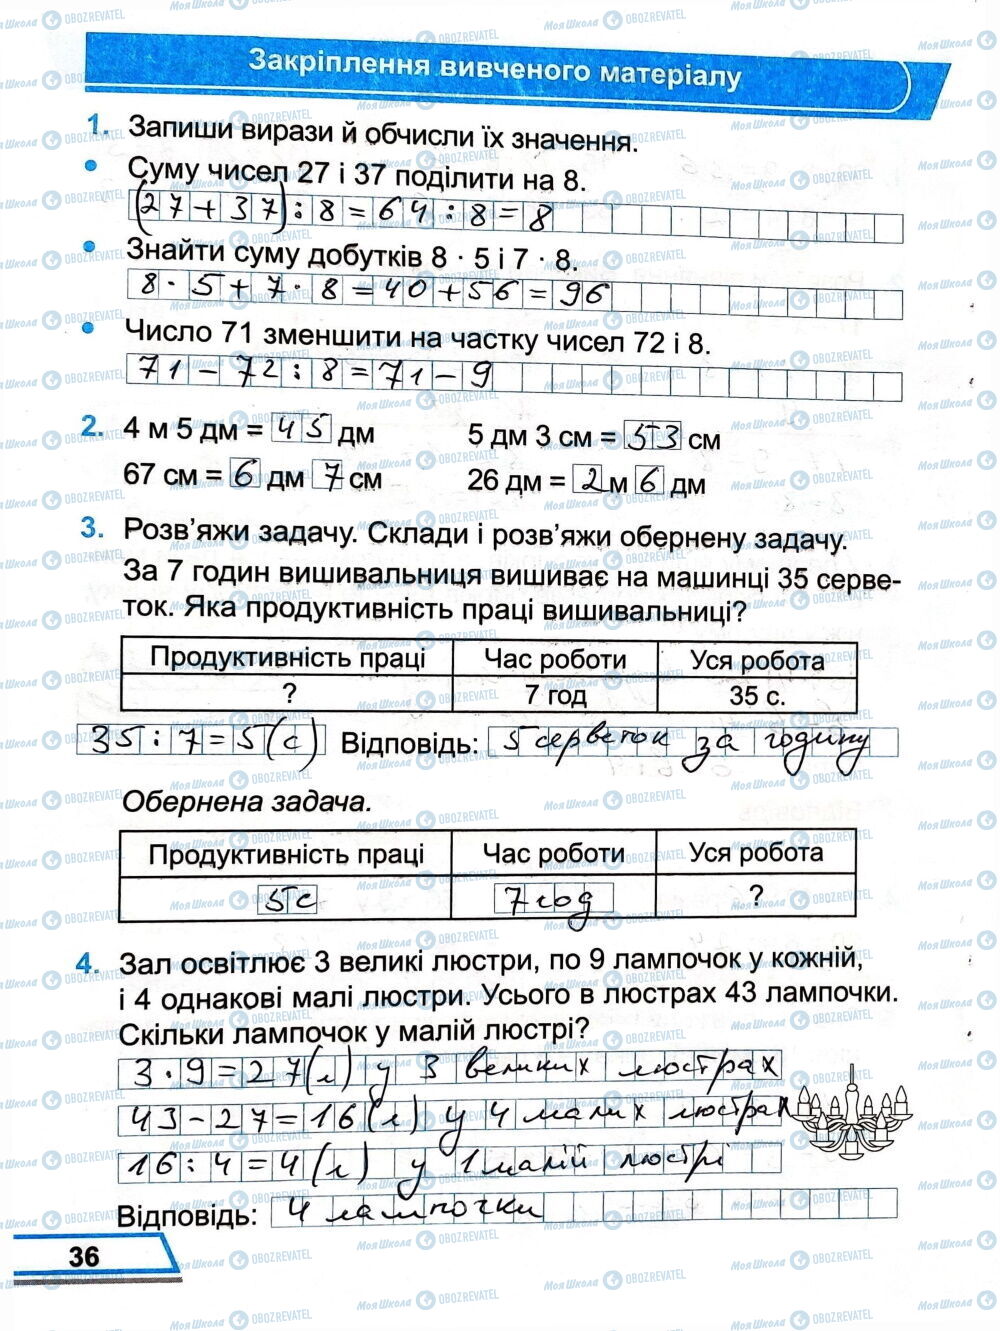 Закріплення вивченого матеріалу
1. Запиши вирази й обчисли їх значення.
• Суму чисел 27 і 37 поділити на 8.
(27+37):8=64:8=8
• Знайти суму добутків 8 · 5 і 7 · 8.
8·5+7·8=40+56=96
• Число 71 зменшити на частку чисел 72 і 8.
71-72:8=71-9
2. 4 м 5 дм = 45 дм 5 дм 3 см = 53 см
67 см = 6 дм 7 см 26 дм = 2 м 6 дм
3. Розв'яжи задачу. Склади і розв'яжи обернену задачу.
За 7 годин вишивальниця вишиває на машинці 35 серве-
ток. Яка продуктивність праці вишивальниці?
Продуктивність праці Час роботи Уся робота
? 7 год 35 с.
35:7=5(с) Відповідь: 5 серветок за годину
Обернена задача.
Продуктивність праці Час роботи Уся робота
5с 7год ?
4. Зал освітлює 3 великі люстри, по 9 лампочок у кожній,
і 4 однакові малі люстри. Усього в люстрах 43 лампочки.
Скільки лампочок у малій люстрі?
3·9=27(л) у 3 великих люстрах
43-27=16(л) у 4 малих люстрах
16:4=4(л) у 1 малій люстрі
Відповідь: 4 лампочки
36
МояШкола OBOZREVATEL